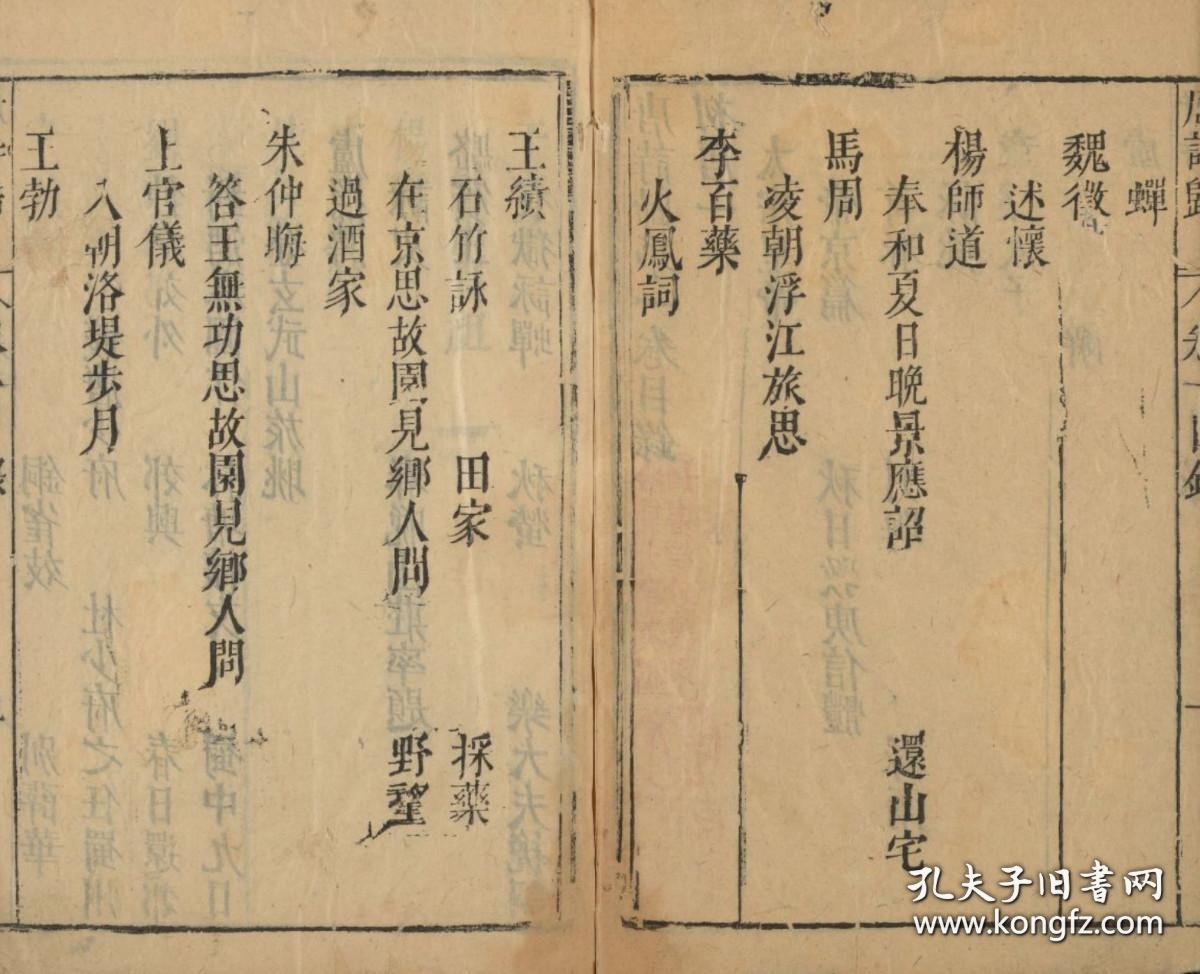 蟬
魏徵
述懷
楊師道
奉和夏日晚景應詔 還山宅
馬周
凌朝浮江旅思
李百藥
火鳳詞
王績
石竹詠 田家 採藥
在京思故園見鄉人問 野望
過酒家
朱仲晦
答王無功思故園見鄉人問
上官儀
入朝洛堤步月
王勃
孔夫子旧书网
www.kongfz.com